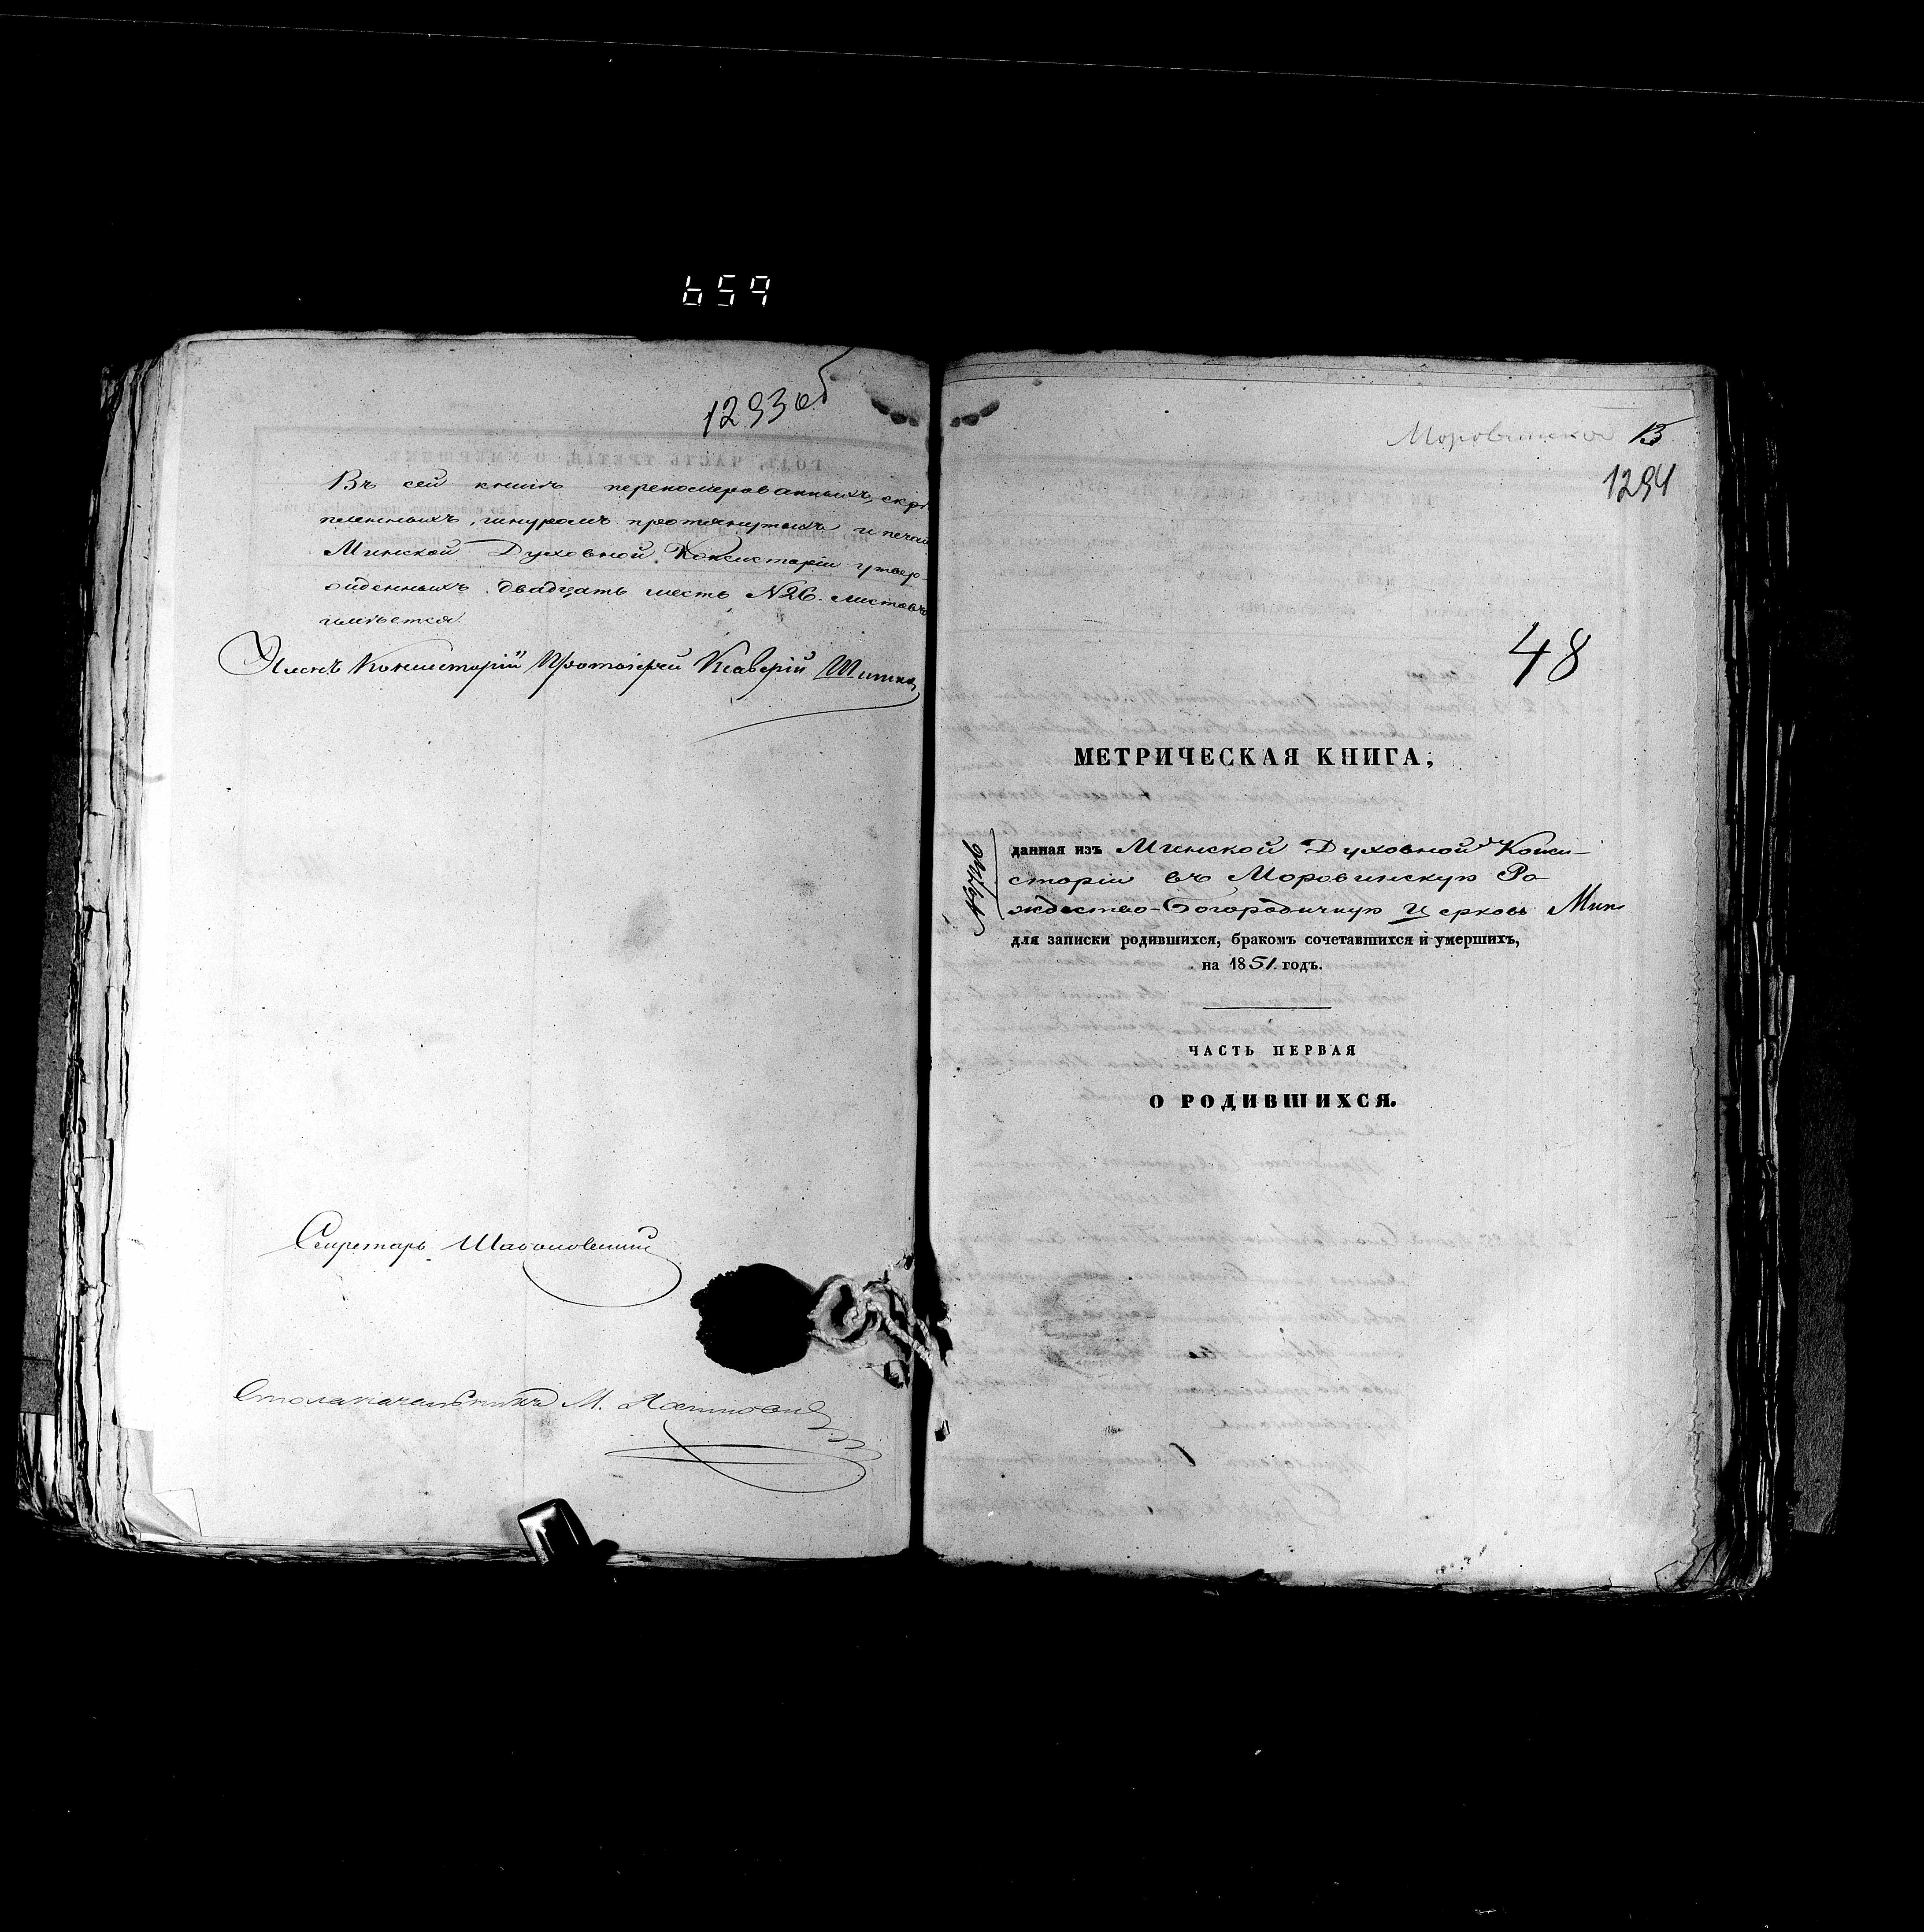 659
1293 об
Въ сей книгѣ перенумерованныхъ, скрѣ
пленныхъ, шнуромъ протянутыхъ и печат
Минской Духовной Консисторіи утвер-
жденныхъ двадцать шесть №26. листовъ
имѣется.
Членъ Консисторіи Протоіерей Ксаверій
Секретарь
Столоначальникъ М.
Моровинской 13
1294
48
МЕТРИЧЕСКАЯ КНИГА,
данная изъ Минской Духовной Конси-
сторіи въ Моровинскую Ро
ждество-Богородичную Церковь
для записки родившихся, бракомъ сочетавшихся и умершихъ,
на 1851. годъ.
ЧАСТЬ ПЕРВАЯ
О РОДИВШИХСЯ.